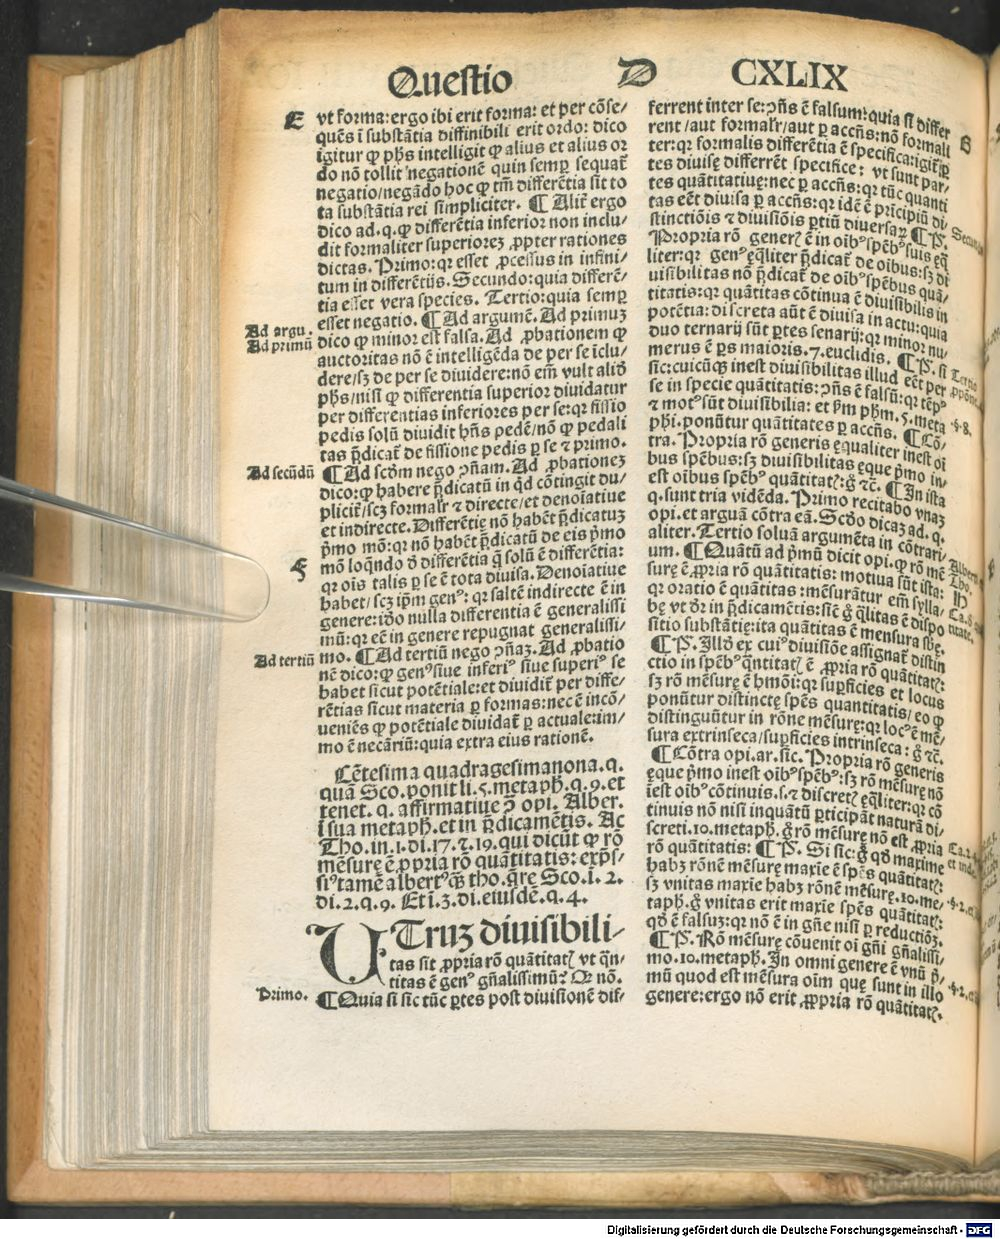 Questio D CXLIX
E vt forma: ergo ibi erit forma: et per cōse/
quēs ī substātia diffinibili erit ordo: dico
igitur ꝙ phs intelligit ꝙ alius et alius or
do nō tollit negationē quin semꝑ sequat̄
negatio/negādo hoc ꝙ tm̄ differētia sit to
ta substātia rei simpliciter. ¶ Alit̄ ergo
dico ad .q. ꝙ differētia inferior non inclu/
dit formaliter superioreꝫ ꝓpter rationes
dictas. Primo: qꝛ esset ꝓcessus in infini/
tum in differētiis. Secundo: quia differē/
tia esset vera species. Tertio: quia semꝑ
esset negatio. ¶ Ad argumē. Ad primuꝫ
Ad argu.
Ad primū
dico ꝙ minor est falsa. Ad ꝓbationem ꝙ
auctoritas nō ē intelligēda de per se īclu/
dere/sꝫ de per se diuidere: nō em̄ vult aliđ
phs/nisi ꝙ differentia superior diuidatur
per differentias inferiores per se: qꝛ fissio
pedis solū diuidit hn̄s pedē/nō ꝙ pedali
tas p̄dicat̄ de fissione pedis ꝑ se ⁊ primo.
Ad secūdū ¶ Ad scdm nego ↄn̄am. Ad ꝓbationeꝫ
dico: ꝙ habere p̄dicatū in qd contingit du/
plicit̄/scꝫ formalr̄ ⁊ directe/et denoīatiue
et indirecte. Differētię nō habēt p̄dicatuꝫ
p̄mo mō: qꝛ nō habēt p̄dicatū de eis p̄mo
F mō loq̄ndo đ differētia q̄ solū ē differētia:
qꝛ oīs talis ꝑ se ē tota diuisa. Denoīatiue
habet/scꝫ ip̄m genꝰ: qꝛ saltē indirecte ē in
genere: iđo nulla differentia ē generalissi
mū: qꝛ eē in genere repugnat generalissi/
Ad tertiū mo. ¶ Ad tertiū nego ↄn̄aꝫ. Ad ꝓbatio
nē dico: ꝙ genꝰ siue inferiꝰ siue superiꝰ se
habet sicut potētiale: et diuidit̄ per diffe/
rētias sicut materia ꝑ formas: nec ē incō/
ueniēs ꝙ potētiale diuidat̄ ꝑ actuale: im/
mo ē necāriū: quia extra eius rationē.
Cētesima quadragesimanona .q.
quā Sco. ponit li. 5. metaph. q. 9. et
tenet .q. affirmatiue ↄ̄ opi. Alber.
ī sua metaph. et in p̄dicamētis. Ac
Tho. in .1. di. 17. ⁊. 19. qui dicūt ꝙ rō
mēsurę ē ꝓpria rō quātitatis: exp̄s/
siꝰ tamē albertꝰ q̄ꝫ tho. q̄re Sco. ī. 2.
di. 2. q. 9. Et ī. 3. di. eiusdē. q. 4.
UTruꝫ diuisibili-
tas sit ꝓpria rō quātitatꝭ vt q̄n-
titas ē genꝰ gn̄alissimū? Qꝛ nō.
Primo. ¶ Quia si sic tūc ꝑtes post diuisionē dif-
ferrent inter se: ↄn̄s ē falsum: quia si differ
rent/aut formalr̄/aut ꝑ accn̄s: nō formali G
ter: qꝛ formalis differētia ē specifica: igit̄ iꝑ
tes diuisę differrēt specifice: vt sunt par/
tes quātitatiuę: nec ꝑ accn̄s: qꝛ tūc quanti
tas eēt diuisa ꝑ accn̄s: qꝛ idē ē prīcipiū di/
stinctiōis ⁊ diuisiōis ꝑtiū diuersaꝝ ¶ P̄.
Propria rō generꝭ ē in oibꝰ spēbꝰ suis ęq̄
liter: qꝛ genꝰ ęq̄liter p̄dicat̄ de oibus: sꝫ di
uisibilitas nō p̄dicat̄ de oibꝰ spēbus quā/
titatis: qꝛ quātitas cōtinua ē diuisibilis in
potētia: discreta aūt ē diuisa in actu: quia
duo ternarij sūt ꝑtes senarij: qꝛ minor nu/
merus ē ꝑs maioris. 7. euclidis. ¶ P̄. si
sic: cuicūqꝫ inest diuisibilitas illud eēt per
se in specie quātitatis: ↄn̄s ē falsū: qꝛ tēpꝰ
⁊ motꝰ sūt diuisibilia: et ẜm phm. 5. meta §. 8.
phi. ponūtur quātitates ꝑ accn̄s. ¶ Cō/
tra. Propria rō generis ęqualiter inest oī
bus spēbus: sꝫ diuisibilitas ęque p̄mo in/
est oibus spēbꝰ quātitatꝭ: g̊ ⁊c. ¶ In ista
q. sunt tria vidēda. Primo recitabo vnaꝫ
opi. et arguā cōtra eā. Scđo dicaꝫ ad .q.
aliter. Tertio soluā argumēta in cōtrari/
um. ¶ Quātū ad p̄mū dicit opi. ꝙ rō mē
surę ē ꝓpria rō quātitatis: motiua sūt ista:
qꝛ oratio ē quātitas: mēsurātur em̄ sylla/
bę vt đr in p̄dicamētis: sic g̊ q̄litas ē dispo
sitio substātię: ita quātitas ē mensura sbę.
¶ P̄. Illđ ex cuiꝰ diuisiōe assignat̄ distin
ctio in spēbꝰ q̄ntitatꝭ ē ꝓpria rō quātitatꝭ:
sꝫ rō mēsurę ē hmōi: qꝛ suꝑficies et locus
ponūtur distinctę spēs quantitatis/eo ꝙ
distinguūtur in rōne mēsurę: qꝛ locꝰ ē mē/
sura extrinseca/suꝑficies intrinseca: g̊ ⁊c.
¶ Cōtra opi. ar. sic. Propria rō generis
ęque p̄mo inest oibꝰ spēbꝰ: sꝫ rō mēsurę nō
īest oibꝰ cōtinuis .s. ⁊ discretꝭ ęq̄liter: qꝛ cō
tinuis nō nisi inquātū ꝑticipāt naturā di/
screti. 10. metaph. g̊ rō mēsurę nō est ꝓpria
rō quātitatis: ¶ P̄. Si sic: g̊ qđ maxime
habꝫ rōnē mēsurę maxīe ē spēs quātitatꝭ:
sꝫ vnitas maxīe habꝫ rōnē mēsurę. 10. me/
taph. g̊ vnitas erit maxīe spēs quātitatꝭ:
qđ ē falsuꝫ: qꝛ nō ē in gn̄e nisi ꝑ reductiōꝫ.
¶ P̄. Rō mēsurę cōuenit oī gn̄i gn̄alissi/
mo. 10. metaph. In omni genere ē vnū p̄/
mū quod est mēsura oīm quę sunt in illo
genere: ergo nō erit ꝓpria rō quātitatꝭ.
Digitalisierung gefördert durch die Deutsche Forschungsgemeinschaft - DFG